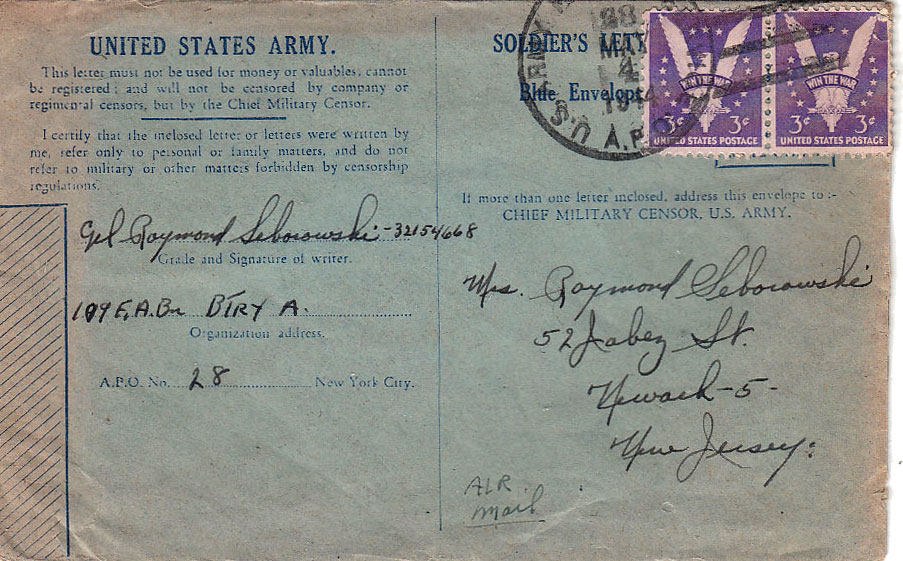 UNITED STATES ARMY.
This letter must not be used for money or valuables, cannot
be registered; and will not be censored by company or
regimental censors, but by the Chief Military Censor.
I certify that the inclosed letter or letters were written by
me, refer only to personal or family matters, and do not
refer to military or other matters forbidden by censorship
regulations.
Cpl Raymond Seborowski - 32154668
Grade and Signature of writer.
109 F.A.Bn BTRY A.
Organization address.
A.P.O. No. 28 New York City.
SOLDIER'S
Blue Envelope
U.S. ARMY
MAY
4
A.P.O.
WIN THE WAR
3¢ 3¢
UNITED STATES POSTAGE
WIN THE WAR
3¢ 3¢
UNITED STATES POSTAGE
If more than one letter inclosed, address this envelope to:-
CHIEF MILITARY CENSOR, U.S. ARMY.
Mrs. Raymond Seborowski
52 Jabez St.
Newark - 5 -
New Jersey.
AIR
mail